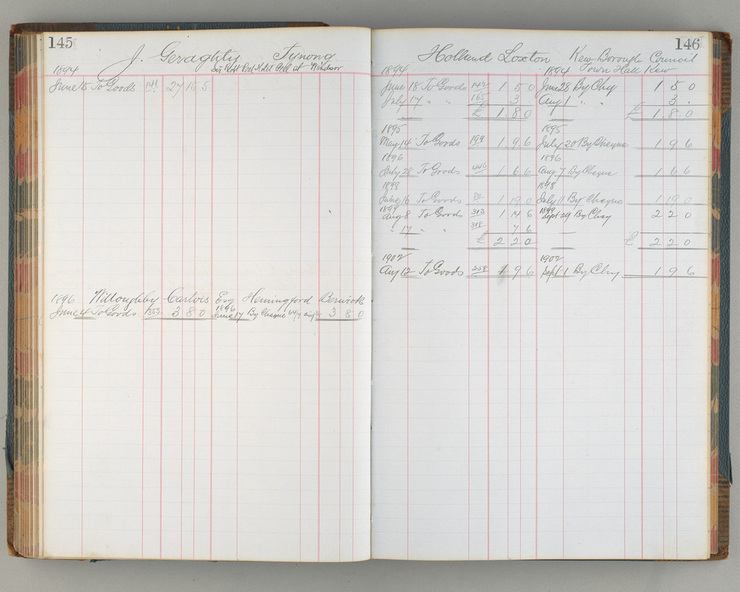 145
J. Geraghty Tynong
1894
June 15 To Goods 141 27 15 5
1896 Willoughby Esq Hemingford Berwick
June 4 To Goods 3 8 0 1896 June 17 By Cheque 3 8 0
146
Holland Loxton Kew Borough Council
1894 1894 Town Hall Kew
June 18 To Goods 142 1 5 0 June 28 By Chq 1 5 0
July 17 " " 165 3 Aug 1 " " 3
£ 1 8 0 £ 1 8 0
1895 1895
May 14 To Goods 1 9 6 July 20 By Cheque 1 9 6
1896 1896
July 28 To Goods 1 6 6 Aug 7 By Cheque 1 6 6
1898 1898
To Goods 1 19 0 July 11 By Cheque 1 19 0
1899 1899
Aug 8 To Goods 1 14 6 Sept 29 By Chq 2 2 0
" 17 " " 7 6
£ 2 2 0 £ 2 2 0
1902 1902
Aug 12 To Goods 1 9 6 Sept 1 By Chq 1 9 6